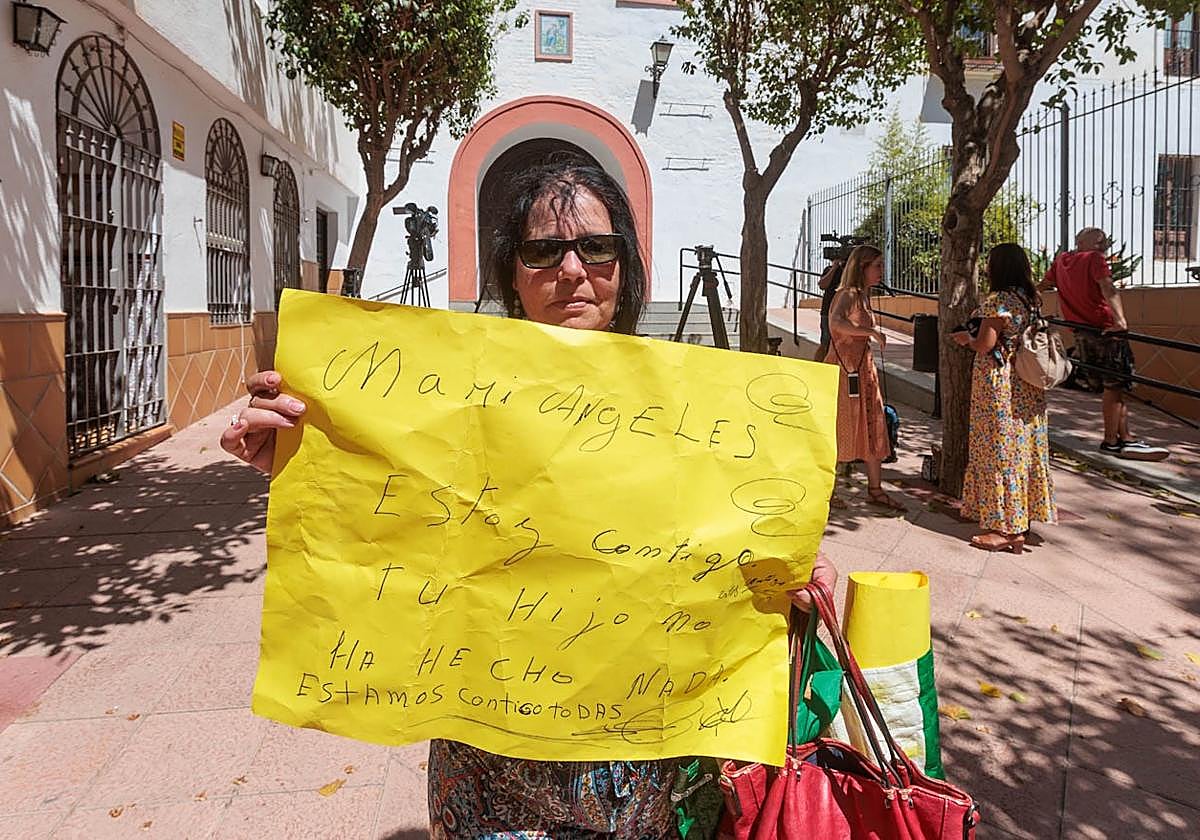 MaMi ANGELES
Estoy contigo.
TU Hijo no
HA HECHO NADA.
ESTAMOS contigo toDAS